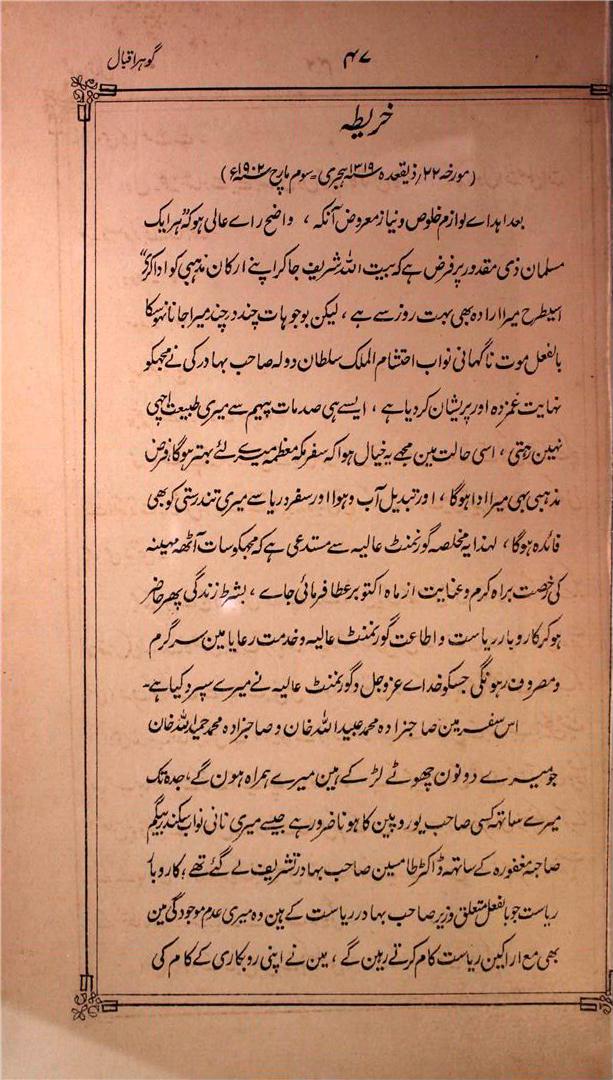 گوہر اقبال ۴۷
خریطہ
(مورخہ ۲۲؍ ذیقعدہ ۱۳۱۹ سنہ ہجری = سوم مارچ سنہ ۱۹۰۲ ع)
بعد اہداے لوازم خلوص و نیاز معروض آنکہ، واضح راے عالی ہو کہ ”ہر ایک
مسلمان ذی مقدور پر فرض ہے کہ بیت اللہ شریف جا کر اپنے ارکان مذہبی کو ادا کرے“
اسیطرح میرا ارادہ بھی بہت روز سے ہے، لیکن بوجوہات چند در چند میرا جانا نہوسکا
بالفعل موت ناگہانی نواب احتشام الملک سلطان دولہ صاحب بہادر کی نے مجھکو
نہایت غمزدہ اور پریشان کر دیا ہے، ایسے ہی صدمات پیہم سے میری طبیعت اچہی
نہین رہتی، اسی حالت مین مجھے یہ خیال ہوا کہ سفر مکہ معظمہ میرے لئے بہتر ہو گا، فرض
مذہبی بہی میرا ادا ہوگا، اور تبدیل آب و ہوا اور سفر دریا سے میری تندرستی کو بھی
فائدہ ہوگا، لہذا یہ مخلصہ گورنمنٹ عالیہ سے مستدعی ہے کہ مجہکو سات آٹھ مہینہ
کی رخصت براہ کرم و عنایت از ماہ اکتوبر عطا فرمائی جاے، بشرط زندگی پھر حاضر
ہو کر کاروبار ریاست و اطاعت گورنمنٹ عالیہ و خدمت رعایا مین سرگرم
و مصروف رہونگی جسکو خداے عز و جل و گورنمنٹ عالیہ نے میرے سپرد کیا ہے۔
اس سفر مین صاحبزادہ محمد عبید اللہ خان و صاحبزادہ محمد حمید اللہ خان
جو میرے دونون چھوٹے لڑکے ہین میرے ہمراہ ہون گے، جدہ تک
میرے ساتہ کسی صاحب یوروپین کا ہونا ضرور ہے جیسے میری نانی نواب سکندر بیگم
صاحبہ مغفورہ کے ساتہہ ڈاکٹر طامسین صاحب بہادر تشریف لے گئے تھے؛ کاروبار
ریاست جو بالفعل متعلق وزیر صاحب بہادر ریاست کے ہین وہ میری عدم موجودگی مین
بھی مع اراکین ریاست کام کرتے رہین گے، مین نے اپنی روبکاری کے کام کی